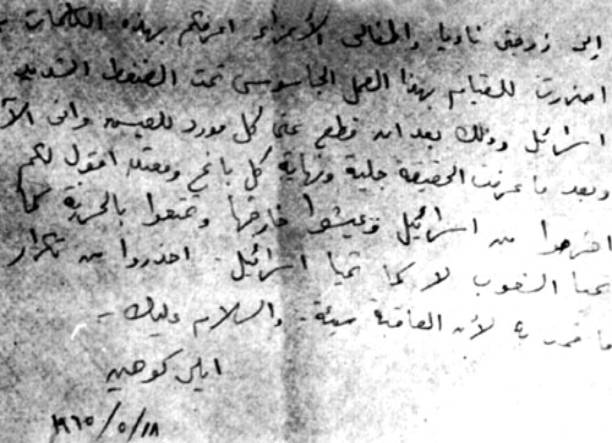 إلى زوجتي ناديا وأطفالي الأعزاء اعرفكم بهذه الكلمات
اضررت للقيام بهذا العمل الجاسوسي تحت الضغط الشديد
اسرائيل وذلك بعد ان قطع عني كل مورد للعيش وانى الآ
وبعد ما عرفت الحقيقة جلية ونهاية كل باغ ومعتد اقول لكم
اخرجوا من اسرائيل وعيشوا خارجها وتمتعوا بالحرية كما
تحيا الشعوب لا كما تحيا اسرائيل. احذروا من تكرار
ما قمت به لأن العاقبة سيئة. والسلام عليك -
ايلي كوهين
١٩٦٥/٥/١٨